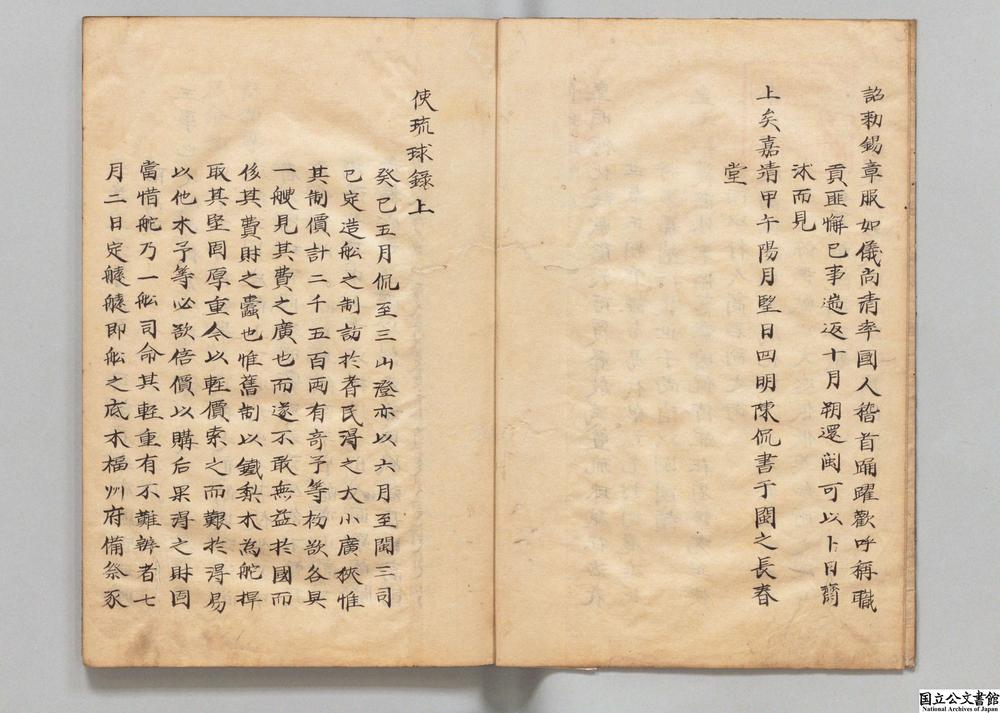 詔勅錫章服如儀尚清率國人稽首踊躍歡呼稱職
貢匪懈巳事遄返十月朔還閩可以卜日齋
沭而見
上矣嘉靖甲午陽月朢日四明陳侃書于閩之長春
堂
使琉球錄上
癸巳五月侃至三山澄亦以六月至閩三司
巳定造舩之制訪於耆民淂之大小廣狹惟
其制價計二千五百兩有竒予等初欲各具
一艘見其費之廣也而遂不敢無益於國而
侈其費財之蠹也惟舊制以鐵梨木為舵捍
取其堅固厚重今以輕價索之而艱於淂易
以他木予等必欲倍價以購后果淂之財固
當惜舵乃一舩司命其輕重有不難辨者七
月二日定艤艤即舩之底木福州府備祭豕
国立公文書館
National Archives of Japan